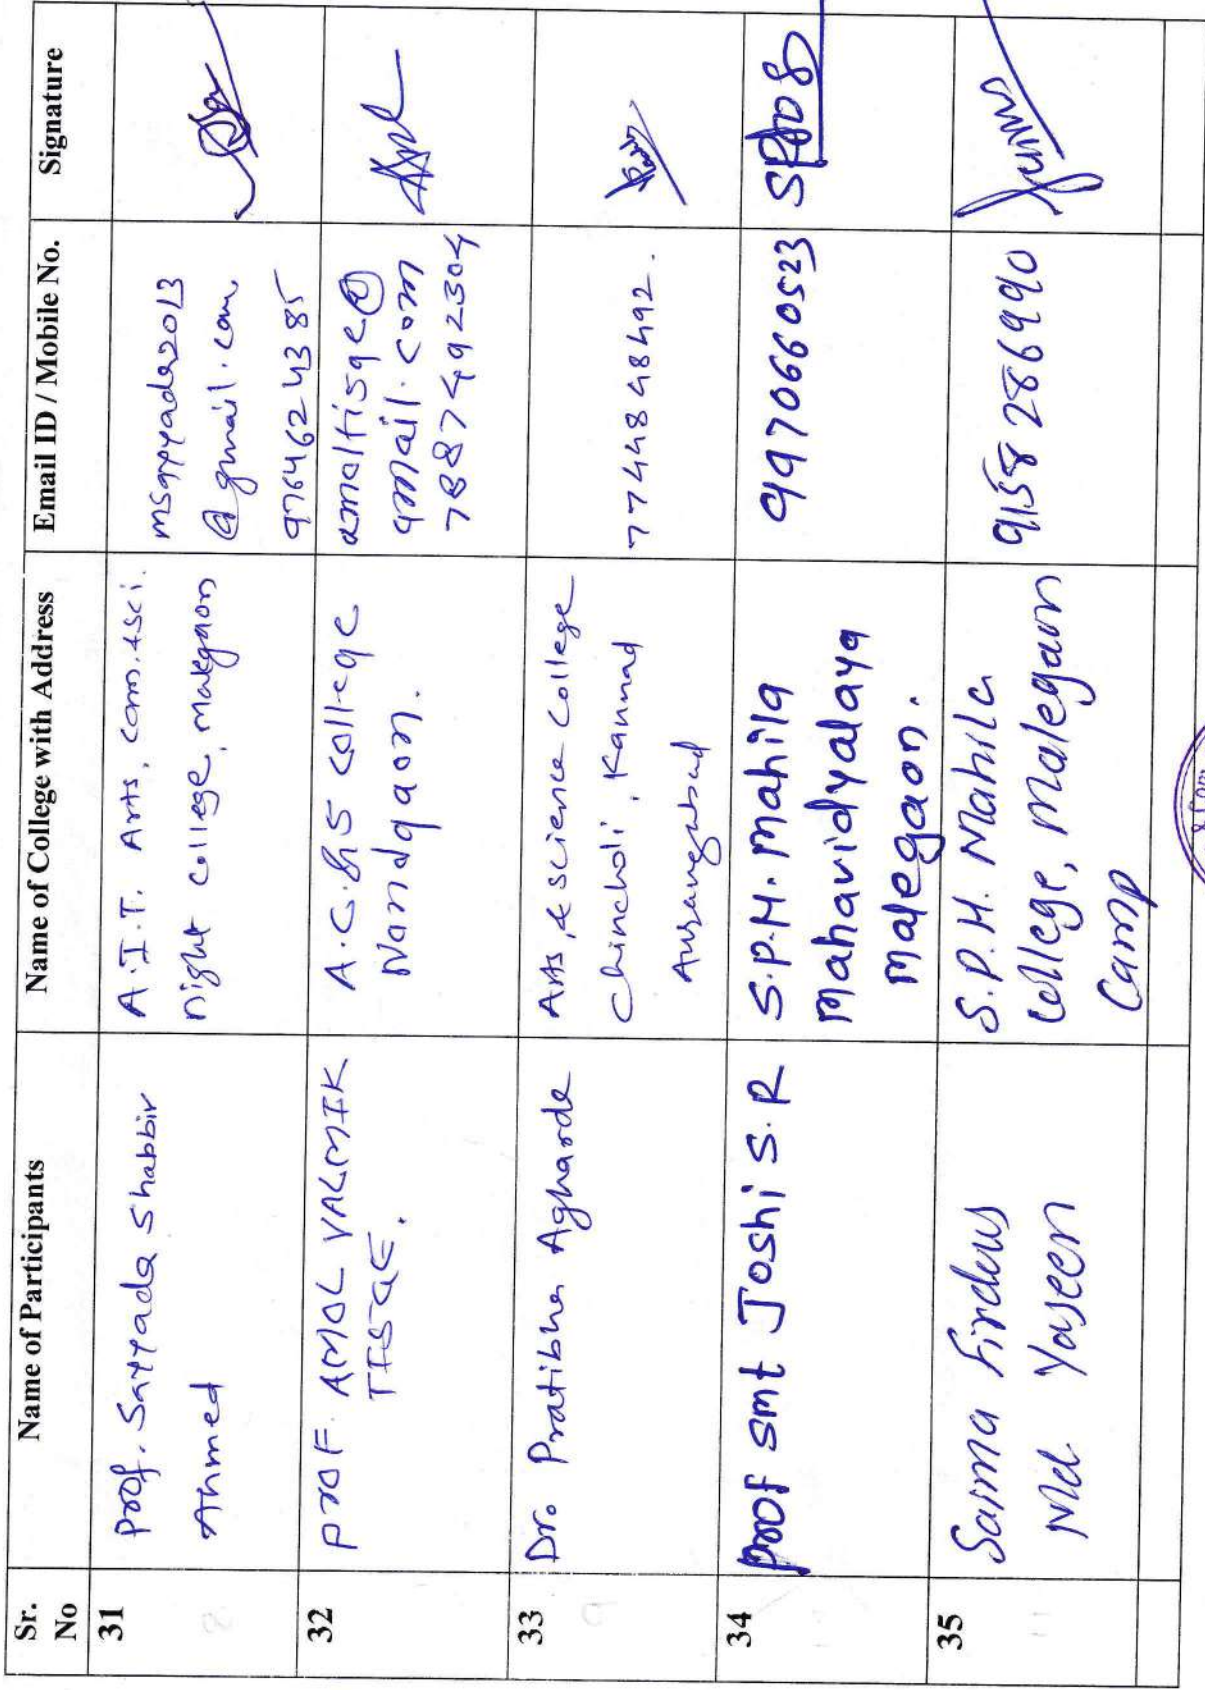 Sr. No
Name of Participants
Name of College with Address
Email ID / Mobile No.
Signature
31
Prof. Sayyada Shabbir
Ahmed
A.I.T. Arts, Com. & Sci.
Night College, Malegaon
@gmail.com
9764624385
32
Prof. AMOL VALMIK
TISGE.
A.C. & S College
Nandgaon.
amoltisge@
gmail.com
7887492304
33
Dr. Pratibha Agharde
Arts & Science College
Chincholi, Kannad
Aurangabad
7744848492.
34
Prof smt Joshi S.R
S.P.H. Mahila
Mahavidyalaya
Malegaon.
9970660523
35
Saima Firdous
Md Yaseen
S.P.H. Mahila
College, Malegaon
Camp
9158286990